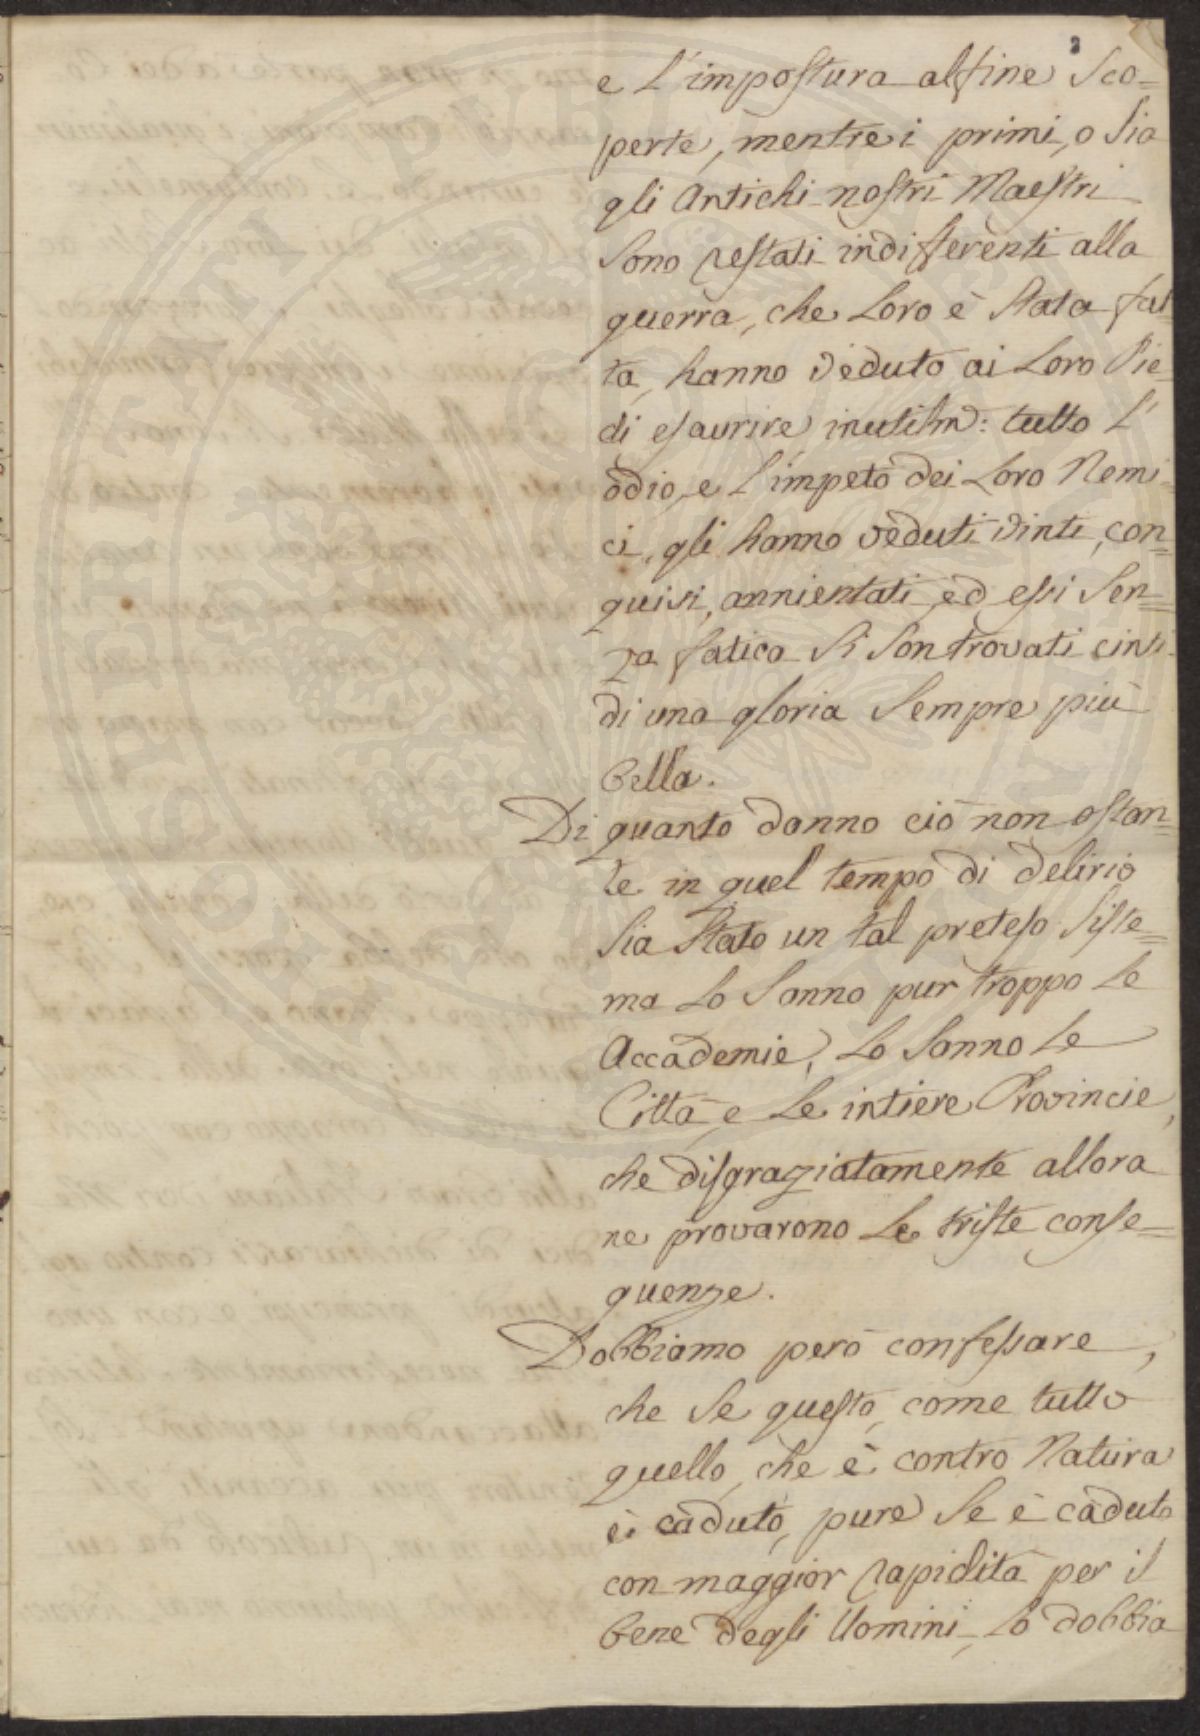 2
e l'impostura alfine sco=
perte, mentre i primi, o sia
gli Antichi nostri Maestri
sono restati indifferenti alla
guerra, che loro è stata fat
ta, hanno veduto ai loro Pie=
di esaurire inutilm: tutto l'
odio, e l'impeto dei loro Nemi=
ci, gli hanno veduti vinti, con=
quisi, annientati ed essi sen=
za fatica si son trovati cinti
di una gloria sempre più
bella.
Di quanto danno ciò non ostan=
te in quel tempo di delirio
sia stato un tal preteso siste=
ma lo sanno pur troppo le
Accademie, lo sanno le
Città, e le intiere Provincie,
che disgraziatamente allora
ne provarono le triste conse=
guenze.
Dobbiamo però confessare,
che se questo, come tutto
quello, che è contro Natura
è caduto, pure se è caduto
con maggior rapidità per il
bene degli Uomini, lo dobbia